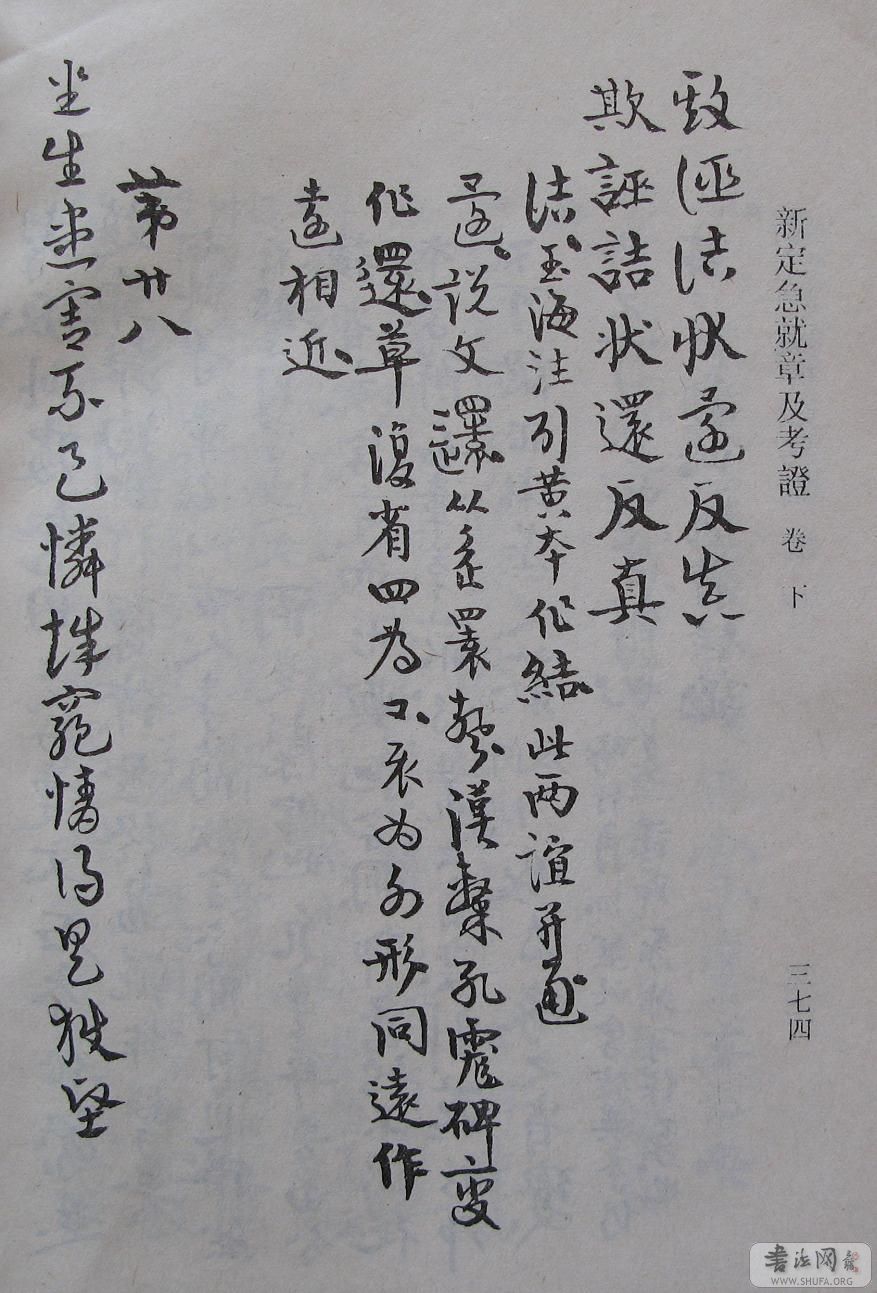 新定急就章及考證 卷下
三七四
欺誣詰狀還反真
欺誣詰狀還反真
詰、玉海注引黃本作結、此兩誼并通
還、說文還、从辵瞏聲漢隸孔宙碑變
作還、草復省四為口、衣為形同遠作
遠相近、
苐廿八
坐生患害不足憐辭窮情得具獄堅
書法网
WWW.SHUFA.ORG